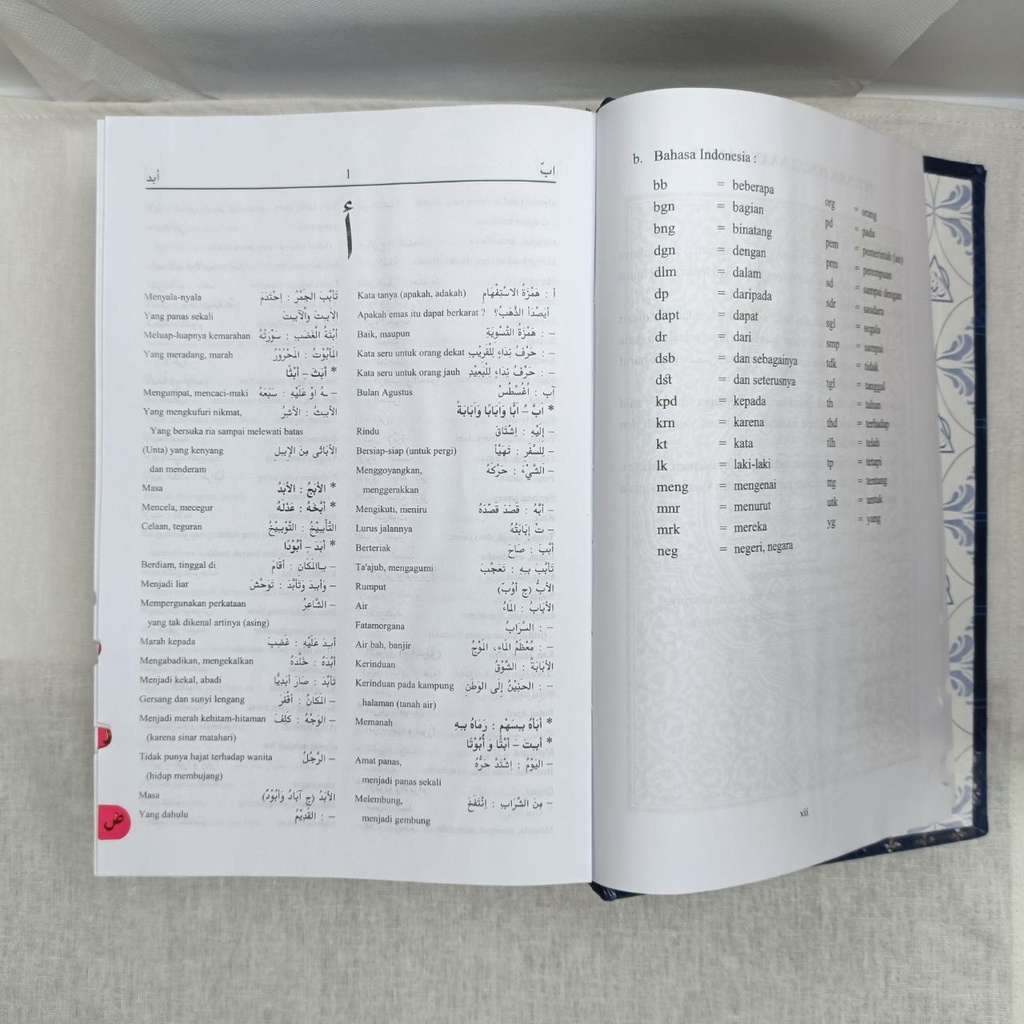 b. Bahasa Indonesia :
bb = beberapa
bgn = bagian
bng = binatang
dgn = dengan
dlm = dalam
dp = daripada
dapt = dapat
dr = dari
dsb = dan sebagainya
dst = dan seterusnya
kpd = kepada
krn = karena
kt = kata
lk = laki-laki
meng = mengenai
mnr = menurut
mrk = mereka
neg = negeri, negara
org = orang
pd = pada
pem = pemerintah (an)
prm = perempuan
sd = sampai dengan
sdr = saudara
sgl = segala
smp = sampai
tdk = tidak
tgl = tanggal
th = tahun
thd = terhadap
tlh = telah
tp = tetapi
ttg = tentang
utk = untuk
yg = yang
xii
ابّ
1
أبد
أ
Kata tanya (apakah, adakah) أ : هَمْزَةُ الاسْتِفْهَامِ
Apakah emas itu dapat berkarat ? أَيَصْدَأُ الذَّهَبُ؟
Baik, maupun – : هَمْزَةُ التَّسْوِيَةِ
Kata seru untuk orang dekat – : حَرْفُ نِدَاءٍ لِلْقَرِيْبِ
Kata seru untuk orang jauh – : حَرْفُ نِدَاءٍ لِلْبَعِيْدِ
Bulan Agustus آب : أُغُسْطُسْ
* أَبَّ – أَبًّا وَأَبَابًا وَأَبَابَةً
Rindu – إِلَيْهِ : اِشْتَاقَ
Bersiap-siap (untuk pergi) – لِلسَّفَرِ : تَهَيَّأَ
Menggoyangkan, – الشَّيْءَ : حَرَّكَهُ
menggerakkan
Mengikuti, meniru – أَبَّهُ : قَصَدَ قَصْدَهُ
Lurus jalannya – تْ إِبَابَتُهُ
Berteriak أَبَّبَ : صَاحَ
Ta'ajub, mengagumi تَأَبَّبَ بِهِ : تَعَجَّبَ
Rumput الأَبُّ (ج أَوُبّ)
Air الأَبَابُ : المَاءُ
Fatamorgana – : السَّرَابُ
Air bah, banjir – : مُعْظَمُ المَاءِ، المَوْجُ
Kerinduan الأَبَابَةُ : الشَّوْقُ
Kerinduan pada kampung – : الحَنِيْنُ إِلَى الوَطَنِ
halaman (tanah air)
Memanah * أَبَأَهُ بِسَهْمٍ : رَمَاهُ بِهِ
* أَبِتَ – أَبْتًا وَ أُبُوْتًا
Amat panas, – اليَوْمُ : اِشْتَدَّ حَرُّهُ
menjadi panas sekali
Melembung, – مِنَ الشَّرَابِ : اِنْتَفَخَ
menjadi gembung
Menyala-nyala تَأَبَّتَ الجَمْرُ : اِحْتَدَمَ
Yang panas sekali الآبِتُ وَالأَبِيتُ
Meluap-luapnya kemarahan أَبْتَةُ الْغَضَبِ : سَوْرَتُهُ
Yang meradang, marah المَأْبُوْتُ : المَحْرُوْرُ
* أَبَثَ – أَبْثًا
Mengumpat, mencaci-maki – ـهُ اَوْ عَلَيْهِ : سَبَعَهُ
Yang mengkufuri nikmat, الأَبِثُ : الأَشِرُ
Yang bersuka ria sampai melewati batas
(Unta) yang kenyang الأَبَاثَى مِنَ الإِبِيلِ
dan menderam
Masa * الأَبَجُ : الأَبَدُ
Mencela, mecegur * أَبَّخَهُ : عَذَلَهُ
Celaan, teguran التَّأْبِيْخُ : التَّوْبِيْخُ
* أَبَدَ – أُبُوْدًا
Berdiam, tinggal di – بِالمَكَانِ : أَقَامَ
Menjadi liar – وَأَبِدَ وَتَأَبَّدَ : تَوَحَّشَ
Mempergunakan perkataan – الشَّاعِرُ
yang tak dikenal artinya (asing)
Marah kepada أَبِدَ عَلَيْهِ : غَضِبَ
Mengabadikan, mengekalkan أَبَّدَهُ : خَلَّدَهُ
Menjadi kekal, abadi تَأَبَّدَ : صَارَ أَبَدِيًّا
Gersang dan sunyi lengang – المَكَانُ : أَقْفَرَ
Menjadi merah kehitam-hitaman – الوَجْهُ : كَلِفَ
(karena sinar matahari)
Tidak punya hajat terhadap wanita – الرَّجُلُ
(hidup membujang)
Masa الأَبَدُ (ج آبَادٌ وَأُبُوْدٌ)
Yang dahulu – : القَدِيْمُ
ض